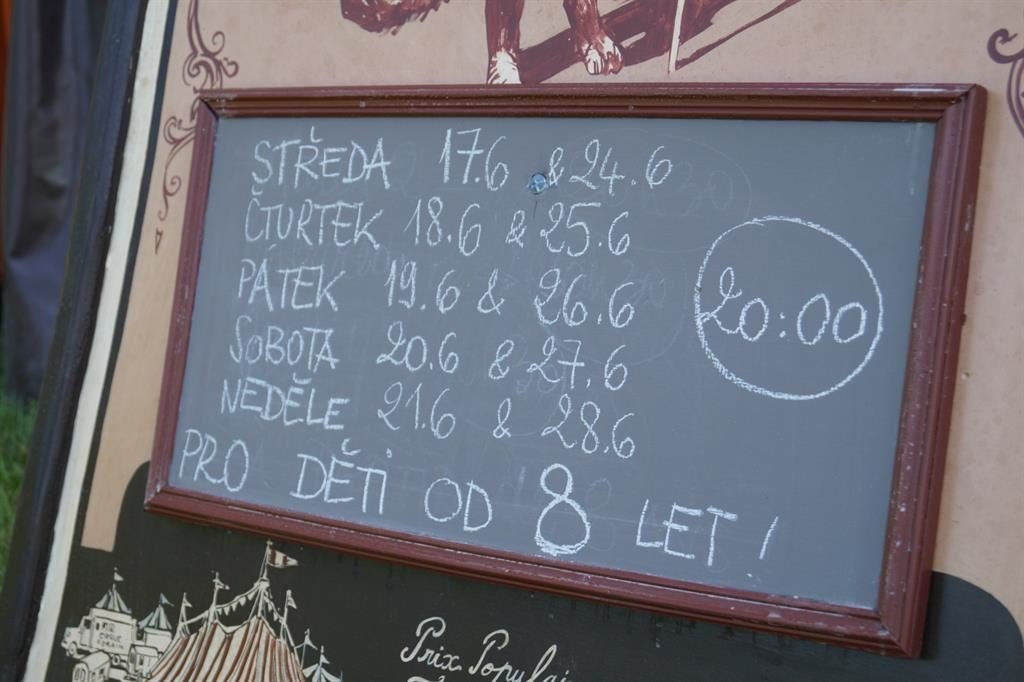 STŘEDA 17.6 & 24.6
ČTURTEK 18.6 & 25.6
PÁTEK 19.6 & 26.6
20:00
SOBOTA 20.6 & 27.6
NEDĚLE 21.6 & 28.6
PRO DĚTI OD 8 LET!
CIRQUE
Prix Populai